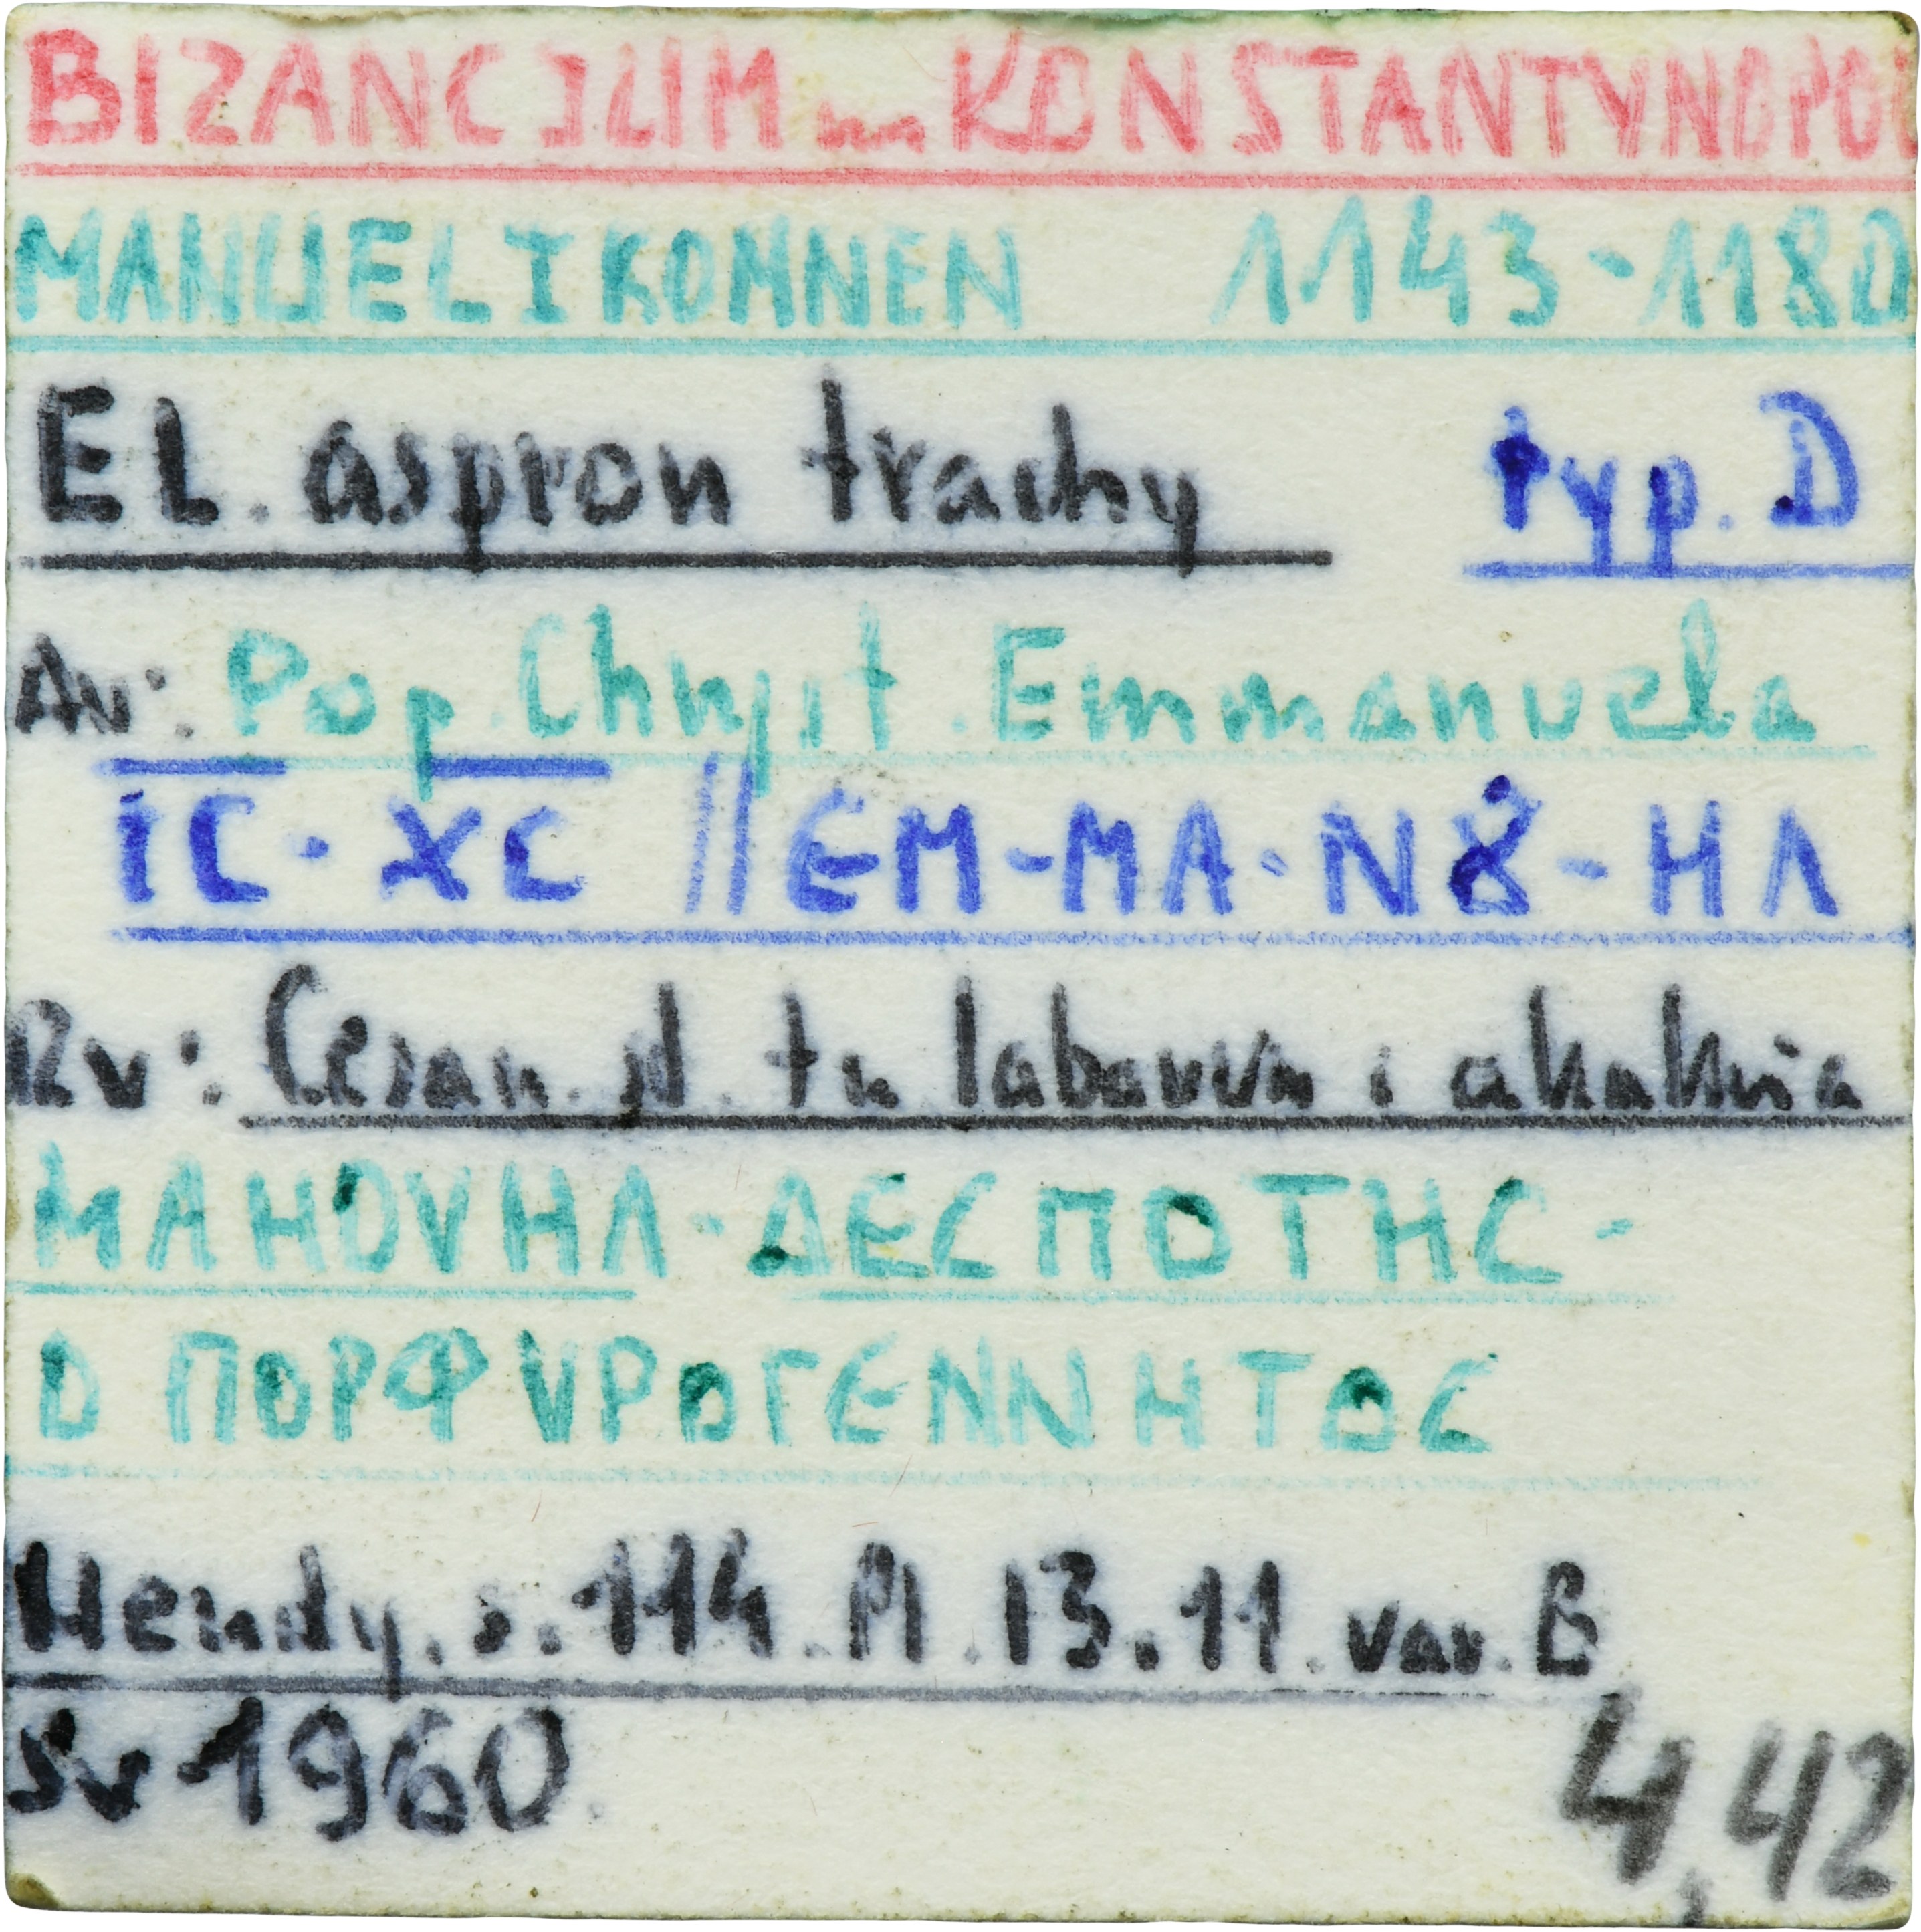 BIZANCJUM m KONSTANTYNOPOL
MANUEL I KOMNEN 1143-1180
EL. aspron trachy typ. D
Av: Pop. Chryst. Emmanuela
IC · XC // ЄM-MA-N8-HΛ
Rv: Cesarz. st. tu labarum i akakia
MAHOVHΛ-ΔЄCΠOTHC-
O ΠOPΦVPOΓЄNNHTOC
Hendy. s. 114. Pl. 13.11. var. B
Sv 1960. 4,42